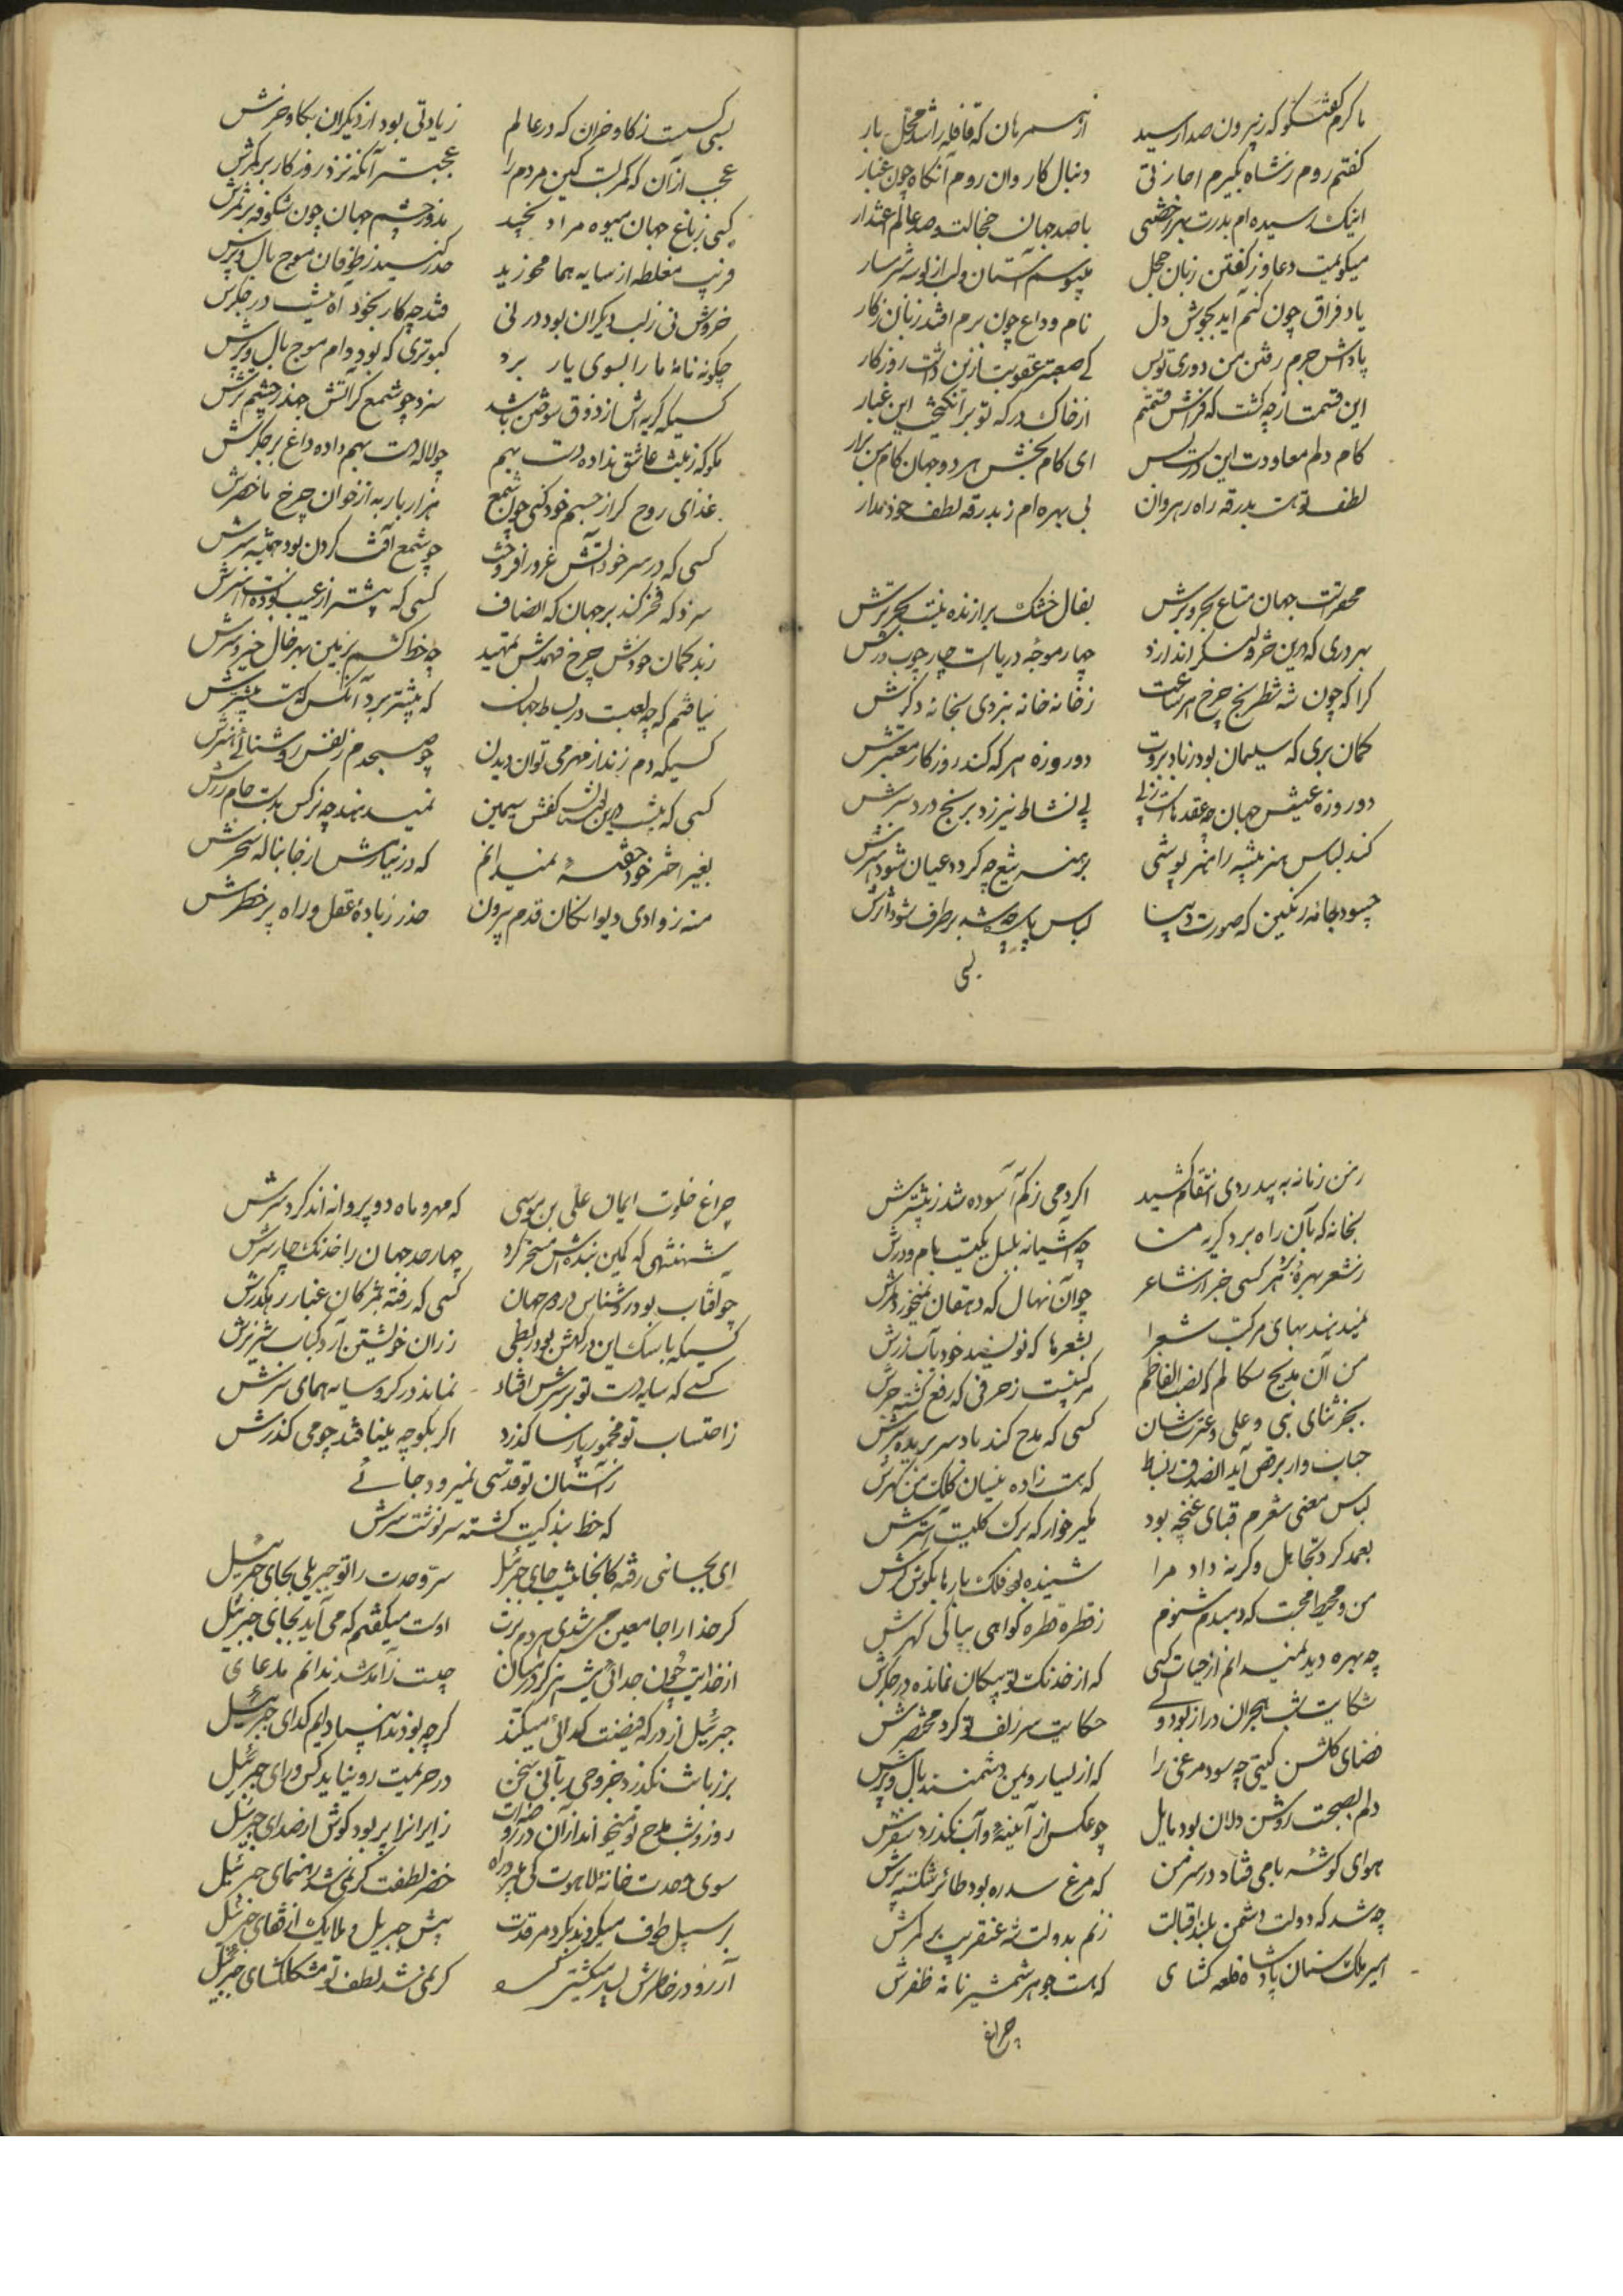 ما گرم گفتگو که ز بیرون صدا رسید از همرهان که قافله را شد محل بار
گفتم روم ز شاه بگیرم اجازتی دنبال کاروان روم آنگاه چون غبار
اینک رسیده‌ام بدرت بهر رخصتی با صد جهان خجالت و صد عالم اعتذار
میگویمت دعا و ز گفتن زبان خجل میبوسم آستان و لب از بوسه شرمسار
یاد فراق چون کنم آید بجوش دل نام وداع چون برم افتد زبان ز کار
پاداش جرم رفتن من دوری تو بس کی صعبتر عقوبت ازین داشت روزگار
این قسمت از چه گشت که فراش قسمتم از خاک درگه تو برانگیخت این غبار
کام دلم معاودت این درست بس ای کام بخش هر دو جهان کام من برار
لطف تو هست بدرقه راه رهروان بی بهره‌ام ز بدرقه لطف خود مدار
محقرست جهان متاع بحر و برش بفال خشک برازنده نیست بحر ترش
بهر دری که درین خرد لنگر اندازد چهار موجه دریاست چارچوب درش
کرا که چون شه شطرنج چرخ هر ساعت ز خانه خانه نبردی بخانه دگرش
گمان بری که سلیمان بود ز باد بروت دو روزه هر که کند روزگار معتبرش
دو روزه عیش جهان پی نشاط نیرزد برنج درد سرش
کند لباس هنر پیشه را هنر پوشی برهنه تیغ چه گردد عیان شود هنرش
چسود جامه رنگین که صورت دیبا لباس پاره چه شد برطرف شود اثرش
بسی
بسی کسست ز گاو و خران که در عالم زیادتی بود از دیگران بگاو و خرش
عجب از آن که کمر بست کین مردم را عجبتر آنکه نزد روزگار بر کمرش
کسی ز باغ جهان میوه مراد نچید ندوز چشم جهان چون شکوفه بر ثمرش
فریب مغلطه از سایه هما مخورید حذر کنید ز طوفان موج بال و پرش
خروش نی ز لب دیگران بود در نی فتد چه کار بخود آه نیست در جگرش
چگونه نامه ما را بسوی یار برد کبوتری که بود دام موج بال و پرش
کسیکه گریه‌اش از ذوق سوختن باشد سزد چو شمع گر آتش جهد ز چشم ترش
مگو که زینت عاشق نداده دست بهم چو لاله دست بهم داده داغ بر جگرش
غذای روح گر از جسم خود کنی چون شمع هزار بار به از خوان چرخ ما حضرش
کسی که در سر خود آتش غرور افروخت چو شمع آفت گردن بود همیشه سرش
سزد که فخر کند بر جهان که انصاف کسی که پیشتر از عیب بوده
ز بد گمان خودش چرخ فهمدش تمهید چه خط کشم بزمین بهر فال خیر و شرش
نیافتم که چه لعبست در بساط جهان که پیشتر برد آنکس که هست بیشترش
کسیکه دم زند از مهر می توان دیدن چو صبحدم ز نفس روشنائی اثرش
کسی که نیست کفش سیمین نمیدهند چه نرگس بدست جام زرش
بغیر اختر خود خفته نمیدانم که در نیارش از جا بناله سحرش
منه ز وادی دیوانگان قدم بیرون حذر ز جاده عقل و راه پر خطرش
ز من زمانه به بیدردی انتقام کشید اگر دمی ز کم آسوده شد ز بیشترش
بخانه که بآن راه برد گریه من چه آشیانه بلبل یکیست بام و درش
ز شعر بهره برد هر کسی جز از شاعر چو آن نهال که دهقان نمیخورد ثمرش
نمیدهند بهای مرکب شعرا بشعرها که نویسند خود بآب زرش
بجز ثنای نبی و علی و عترتشان کسی که مدح کند باد سر بریده
حباب وار برقص آید از صدف ز نشاط که هست زاده نیسان کلک من گهرش
لباس معنی شعرم قبای غنچه بود مگیر خوار که برگ گلیست آسترش
بعمد کرد تجاهل و گرنه داد مرا شنیده بود فلک بارها بگوش کرش
من و محیط محبت که دمبدم شنوم ز قطره قطره گواهی بپاکی گهرش
چه بهره دید نمیدانم از حیات کسی که از خدنگ تو پیکان نمانده در جگرش
شکایت شب هجران دراز بود ولی حکایت سر زلف تو کرد مختصرش
فضای گلشن گیتی چه سود مرغی را که از یسار و یمین دشمنند بال و پرش
دلم بصحبت روشن دلان بود مایل چو عکس از آینه و آب نگذرد سفرش
هوای گوشه بامی فتاد در سر من که مرغ سدره بود طائر شکسته پرش
چه شد که دولت دشمن بلند اقبالت زنم بدولت شه عنقریب بر کمرش
امیر ملک ستان پادشاه قلعه گشای که هست جوهر شمشیر نامه ظفرش
چراغ
چراغ خلوت ایمان علی بن موسی که مهر و ماه دو پروانه‌اند گرد سرش
شهنشهی که کمین بنده‌اش مسخر کرد چهار حد جهان را خدنگ چار پرش
چو آفتاب بود روشناس در دو جهان کسی که رفته بمژگان غبار رهگذرش
کسیکه با سگ این درگهش بود ربطی ز ران خویشتن آرد کباب شیر نرش
کسی که سایه دست تو بر سرش افتاد نماند در گرو سایه همای سرش
ز احتساب تو مخمور پارسا گذرد اگر بکوچه مینا فتد چو می گذرش
ز آستان تو قدسی نمیرود جائی
که خط بندگیت گشته سرنوشت سرش
ای بجائی رفته کانجا نیست جای جبرئیل سر وحدت را تو جبریلی بجای جبرئیل
گر خدا را جا معین می شدی مردم برت اوست میگفتم که می آید بجای جبرئیل
از خدایت چون جدائی نیست چیست ز آمد شد ندانم مدعای
جبرئیل از درگه فیضت گدائی میکند گر چه بودند انبیا دایم گدای جبرئیل
بر زبانت نگذرد جز وحی ربانی سخن در حریمت رو نیابد کس ورای جبرئیل
روز و شب مدح تو میخوانند از آن در زایرانرا پر بود گوش از صدای جبرئیل
سوی وحدت خانه لاهوت کی خضر لطفت گر نمی شد رهنمای جبرئیل
بر سبیل طوف میگردند گرد مرقدت پیش جبریل و ملایک از قفای جبرئیل
آرزو در خاطرش گر نمی شد لطف تو مشکلگشای جبرئیل